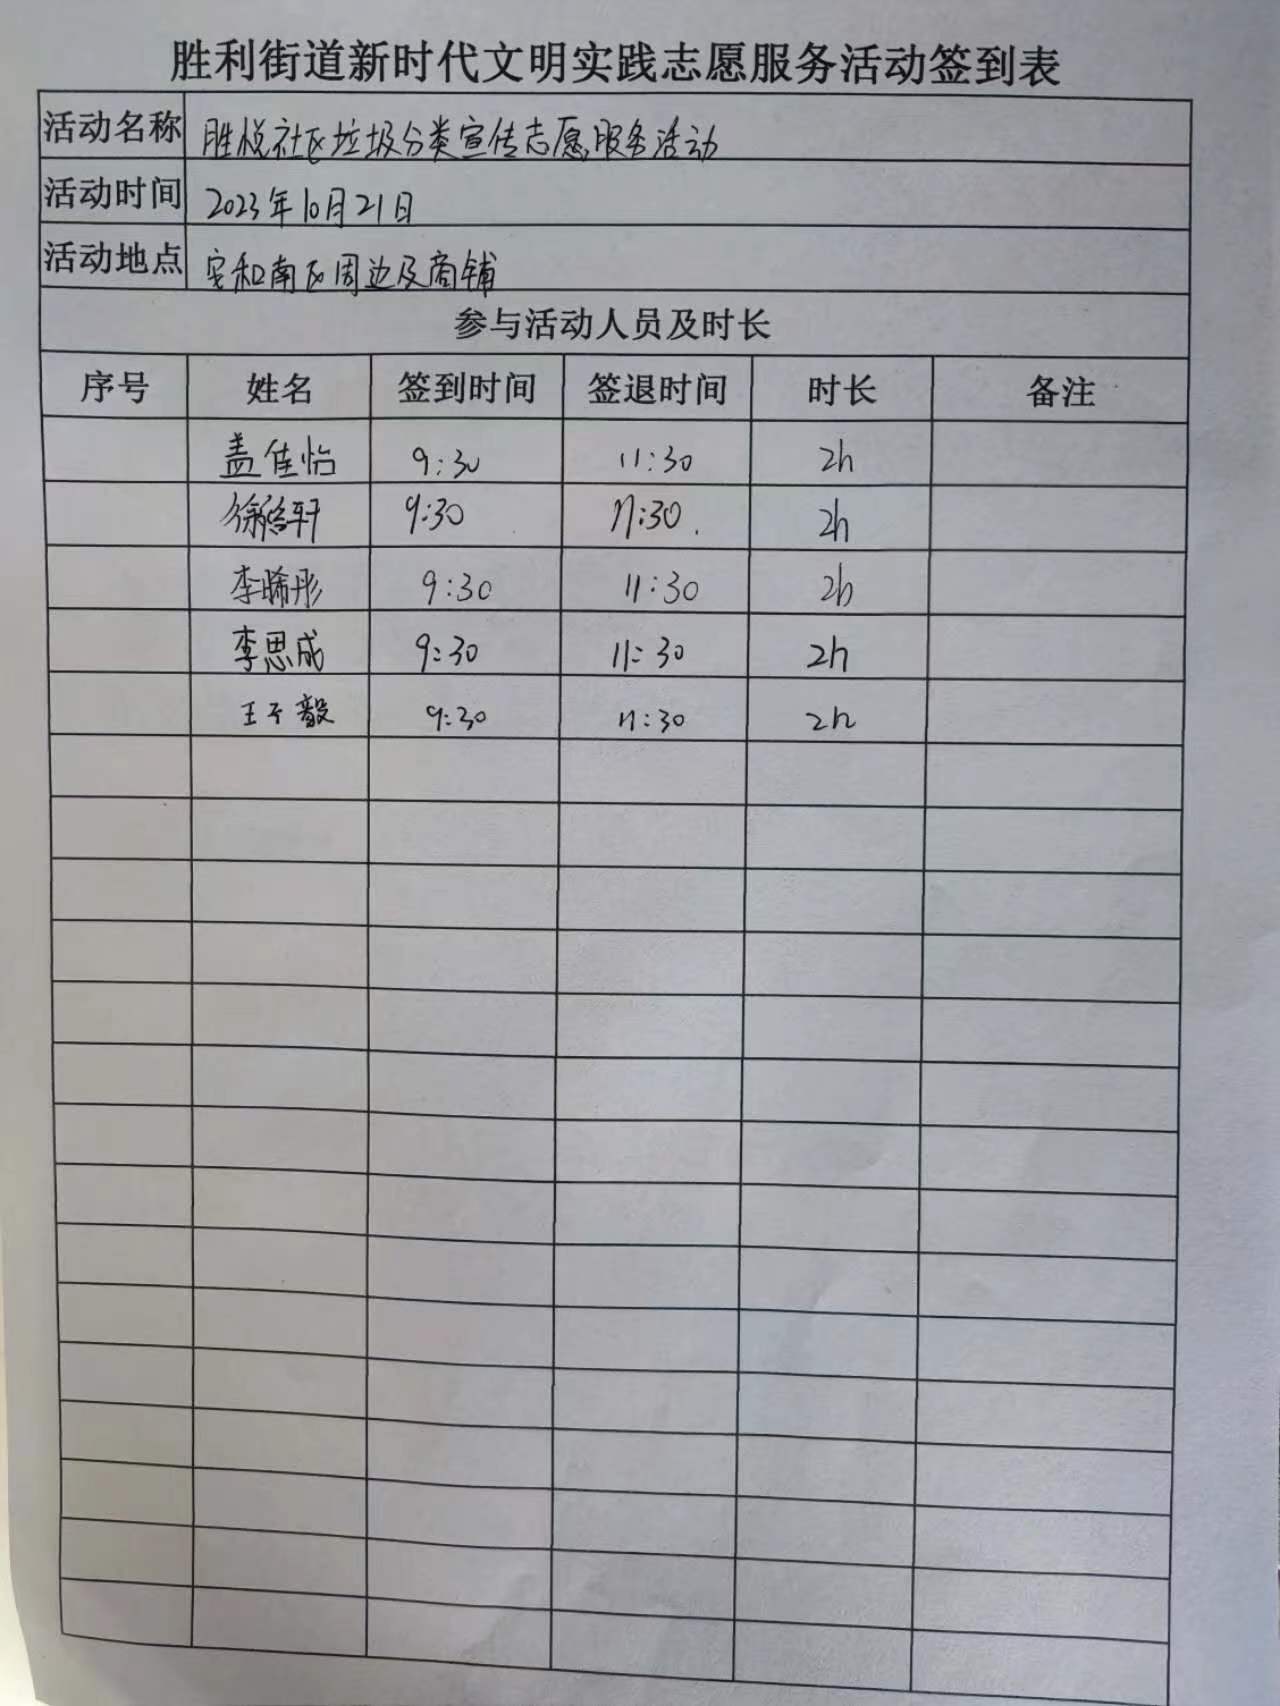 胜利街道新时代文明实践志愿服务活动签到表
活动名称 胜悦社区垃圾分类宣传志愿服务活动
活动时间 2023年10月21日
活动地点 安和南区周边及商铺
参与活动人员及时长
序号 姓名 签到时间 签退时间 时长 备注
盖佳怡 9:30 11:30 2h
9:30 11:30 2h
李晞彤 9:30 11:30 2h
李思成 9:30 11:30 2h
王子毅 9:30 11:30 2h